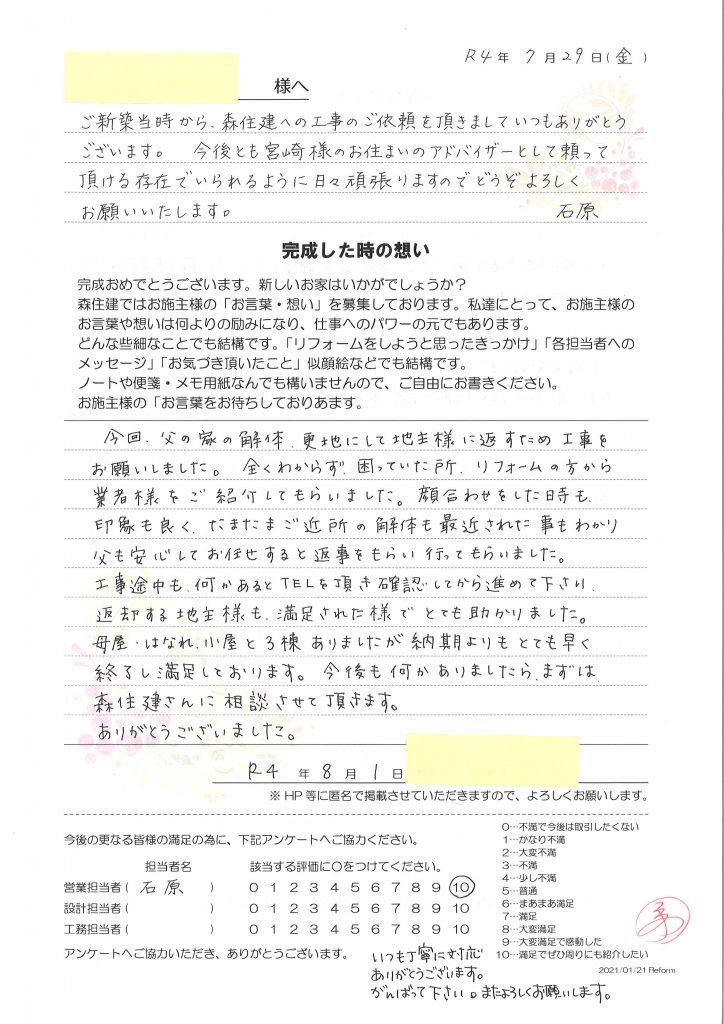 R4年 7月29日(金)
様へ
ご新築当時から、森住建への工事のご依頼を頂きましていつもありがとう
ございます。 今後とも宮崎様のお住まいのアドバイザーとして頼って
頂ける存在でいられるように日々頑張りますのでどうぞよろしく
お願いいたします。 石原
完成した時の想い
完成おめでとうございます。新しいお家はいかがでしょうか？
森住建ではお施主様の「お言葉・想い」を募集しております。私達にとって、お施主様の
お言葉や想いは何よりの励みになり、仕事へのパワーの元でもあります。
どんな些細なことでも結構です。「リフォームをしようと思ったきっかけ」「各担当者への
メッセージ」「お気づき頂いたこと」似顔絵などでも結構です。
ノートや便箋・メモ用紙なんでも構いませんので、ご自由にお書きください。
お施主様の「お言葉をお待ちしておりあます。
今回、父の家の解体、更地にして地主様に返すため工事を
お願いしました。 全くわからず、困っていた所、リフォームの方から
業者様をご紹介してもらいました。顔合わせをした日時も、
印象も良く、たまたまご近所の解体も最近された事もわかり
父も安心してお任せすると返事をもらい行ってもらいました。
工事途中も、何かあるとTELを頂き確認してから進めて下さい、
返却する地主様も、満足された様でとても助かりました。
母屋・はなれ、小屋と3棟ありましたが納期よりもとても早く
終了し満足しております。今後も何かありましたら、まずは、
森住建さんに相談させて頂きます。
ありがとうございました。
R4 年 8 月 1 日
※HP等に匿名で掲載させていただきますので、よろしくお願いします。
今後の更なる皆様の満足の為に、下記アンケートへご協力ください。
担当者名 該当する評価に○をつけてください。
営業担当者( 石原 ) 0 1 2 3 4 5 6 7 8 9 10
設計担当者( ) 0 1 2 3 4 5 6 7 8 9 10
工務担当者( ) 0 1 2 3 4 5 6 7 8 9 10
アンケートへご協力いただき、ありがとうございます。
いつも丁寧に対応
ありがとうございます。
がんばって下さい。またよろしくお願いします。
0…不満で今後は取引したくない
1…かなり不満
2…大変不満
3…不満
4…少し不満
5…普通
6…まあまあ満足
7…満足
8…大変満足
9…大変満足で感動した
10…満足でぜひ周りにも紹介したい
2021/01/21 Reform